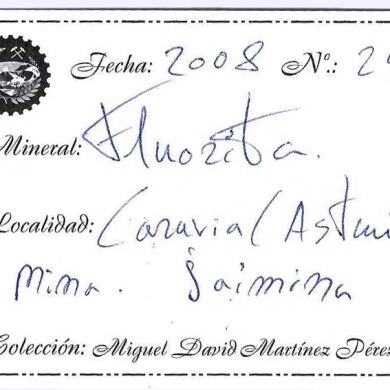 Fecha: 2008 Nº.: 2
Mineral: Fluorita.
Localidad: Caravia (Astur
mina. Jaimina
Colección: Miguel David Martínez Pérez